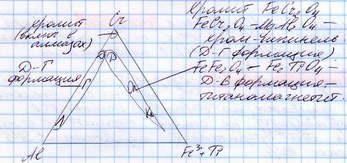 хромит
(включ в
алмазах)
Д-Г
формация
Cr
Al
Fe³⁺Ti
Хромит FeCr₂O₄
FeCr₂O₄-MgAl₂O₄ –
хром-шпинель
(Д-Г формация)
FeFe₂O₄ – Fe₂TiO₄ –
Д-В формация –
титаномагнетит.